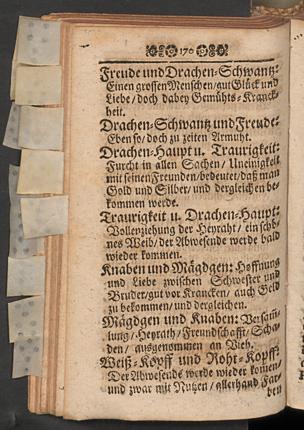 170
Freude und Drachen-Schwantz:
Einen grossen Menschen / gut Glück und
Liebe / doch dabey Gemüths-Kranck-
heit.
Drachen-Schwantz und Freude:
Eben so / doch zu zeiten Armuht.
Drachen-Haupt u. Traurigkeit:
Furcht in allen Sachen / Uneinigkeit
mit seinen Freunden / bedeutet / daß man
Gold und Silber / und dergleichen be-
kommen werde.
Traurigkeit u. Drachen-Haupt:
Vollenziehung der Heyraht / ein schö-
nes Weib / der Abwesende werde bald
wieder kommen.
Knaben und Mägdgen: Hoffnung
und Liebe zwischen Schwester und
Bruder / gut vor Krancken / auch Geld
zu bekommen / und dergleichen.
Mägdgen und Knaben: Versam-
lung / Heyrath / Freundschafft / Scha-
den / ausgenommen an Vieh.
Weiß-Kopff und Roht-Kopff:
Der Abwesende werde wieder kommen /
und zwar mit Nutzen / allerhand Far-
ben